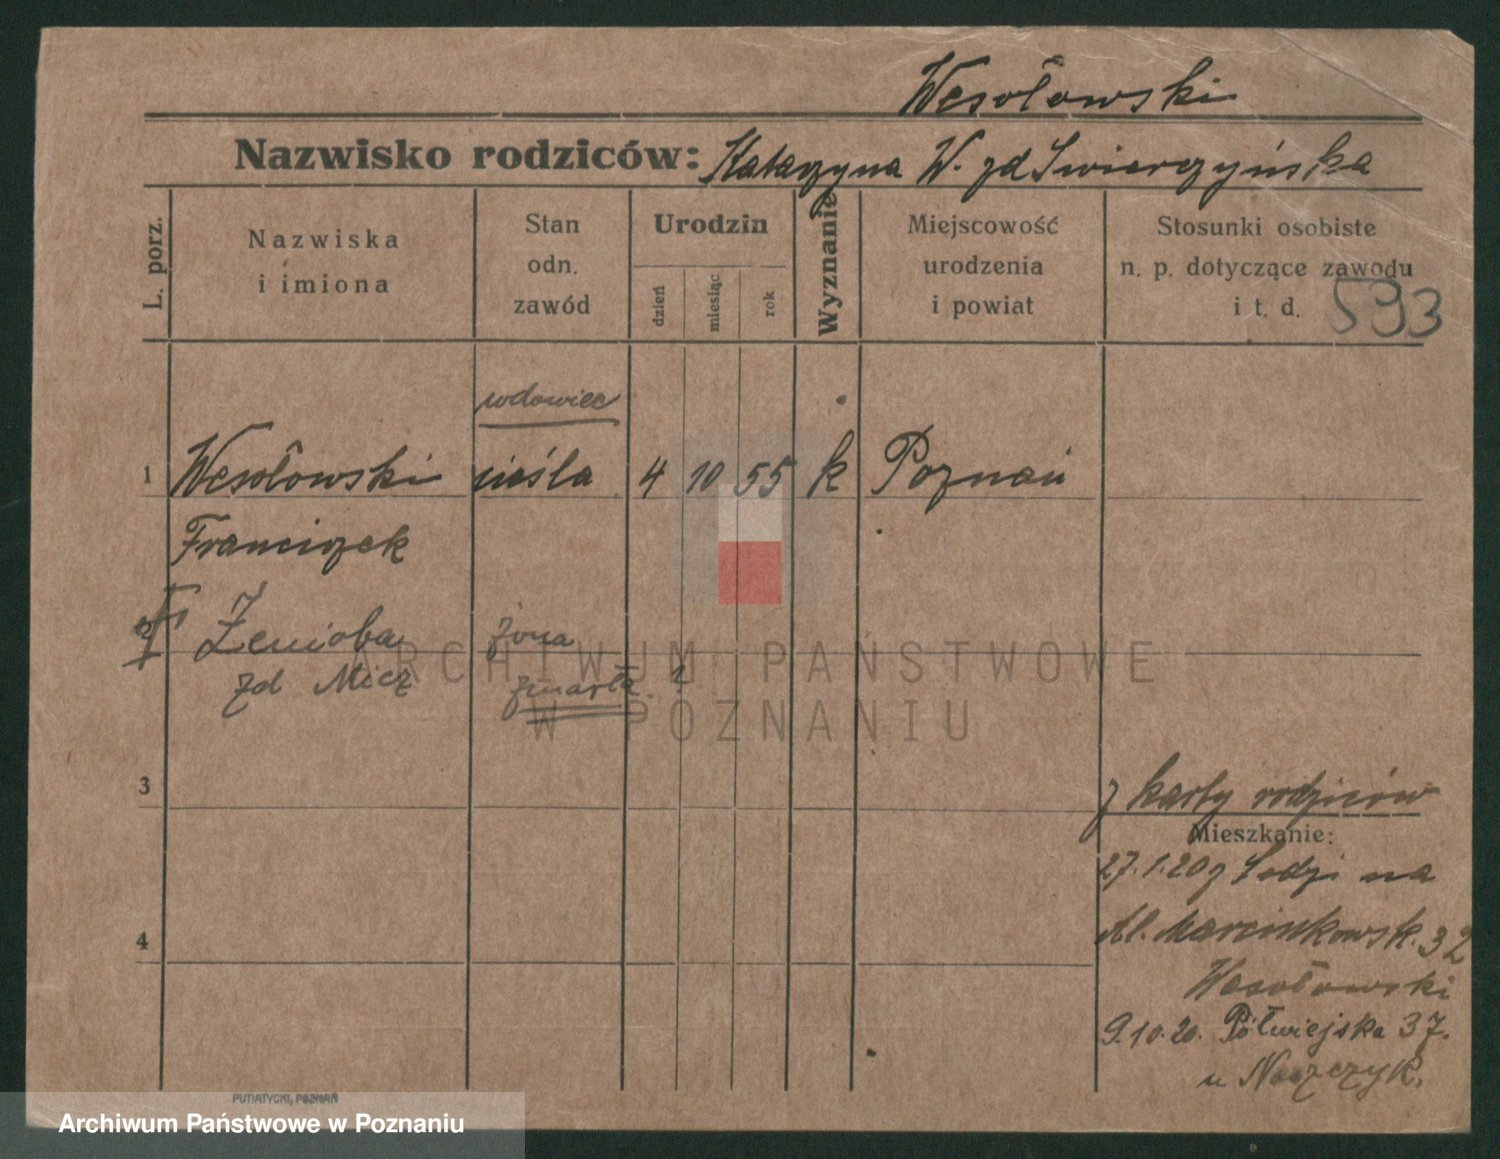 Wesołowski
Nazwisko rodziców: Katarzyna W. zd Swierczyńska
L. porz.
Nazwiska
i imiona
Stan
odn.
zawód
Urodzin
dzień
miesiąc
rok
Wyznanie
Miejscowość
urodzenia
i powiat
Stosunki osobiste
n. p. dotyczące zawodu
i t. d.
593
wdowiec
1 Wesołowski cieśla 4 10 55 k Poznań
Franciszek
2 żona
zd Micz zmarła
3
z karty rodziców
Mieszkanie:
27.1.20 z Łodzi na
4
Al. Marcinkowsk. 32
Wesołowski
9.10.20. Półwiejska 37.
u
PUTIATYCKI, POZNAŃ
ARCHIWUM PAŃSTWOWE
W POZNANIU
Archiwum Państwowe w Poznaniu